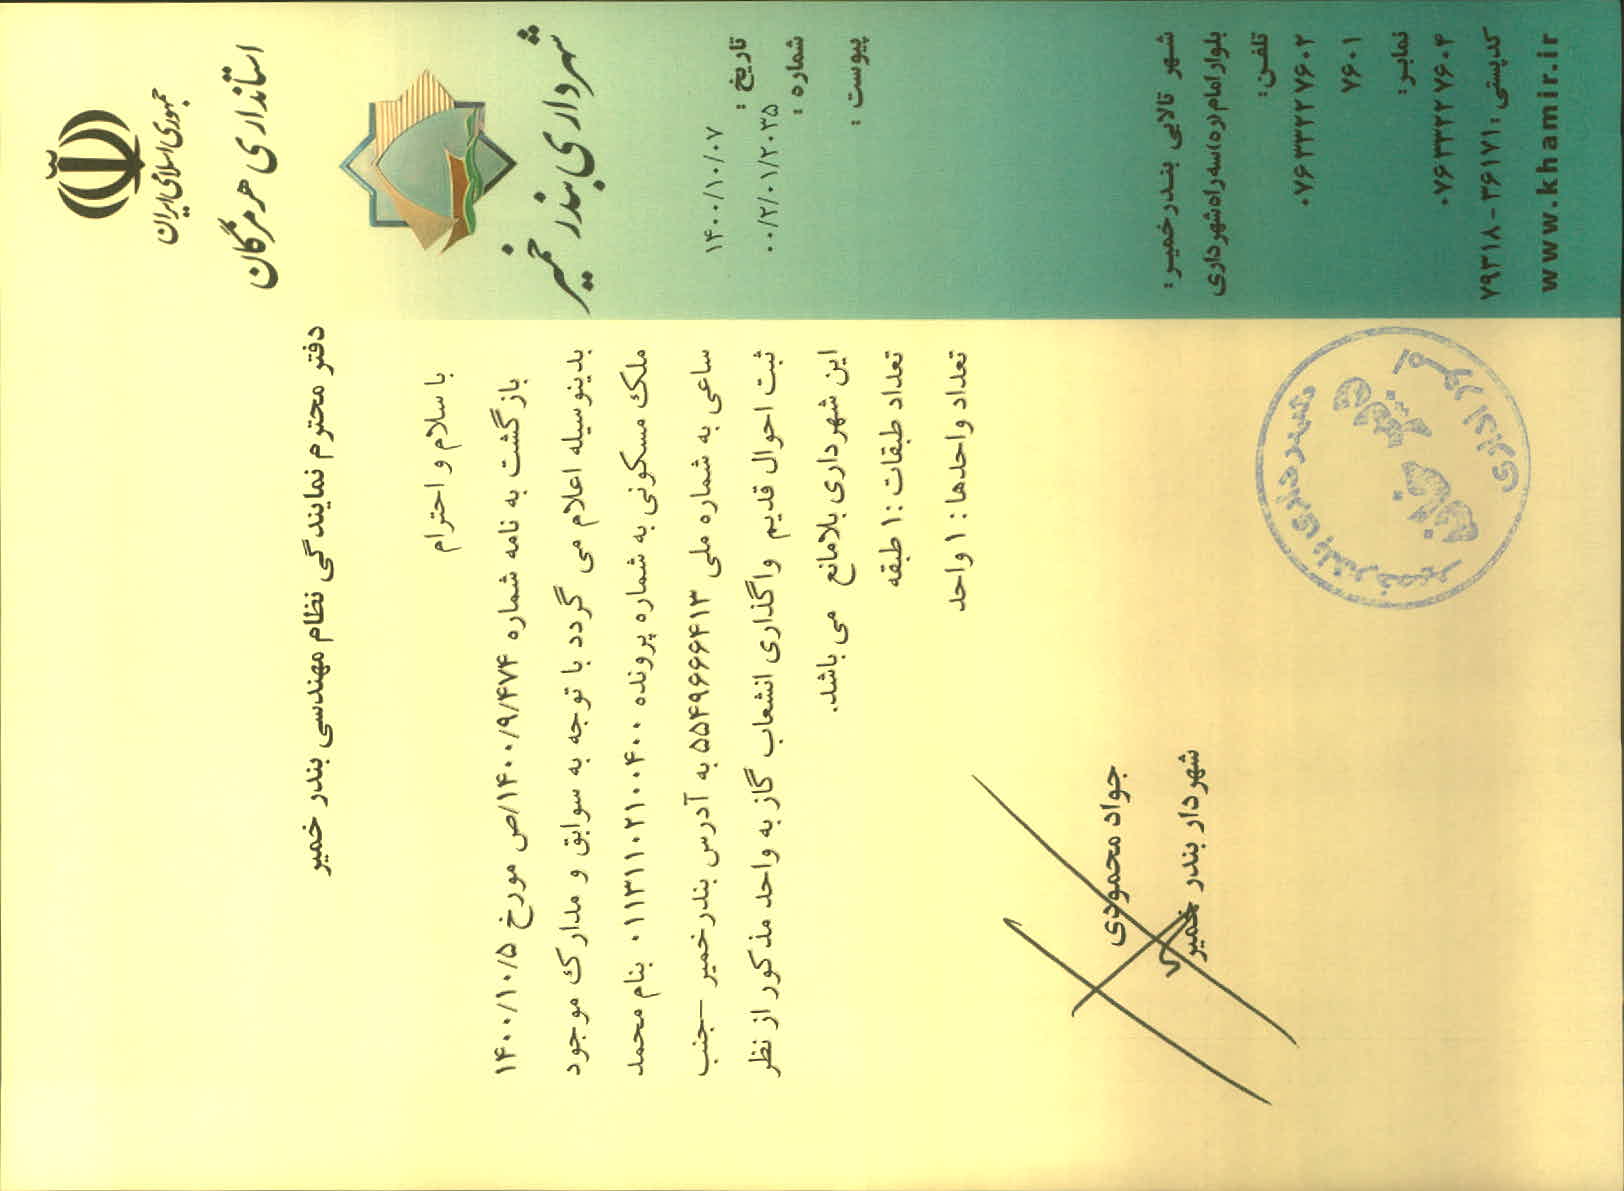 جمهوری اسلامی ایران
استانداری هرمزگان
شهرداری بندر خمیر
تاریخ : ۱۴۰۰/۱۰/۰۷
شماره : ۰۰/۲/۰۱/۲۰۳۵
پیوست :
دفتر محترم نمایندگی نظام مهندسی بندر خمیر
با سلام و احترام
بازگشت به نامه شماره ۱۴۰۰/۹/۴۷۴/ص مورخ ۱۴۰۰/۱۰/۵
بدینوسیله اعلام می گردد با توجه به سوابق و مدارک موجود
ملک مسکونی به شماره پرونده ۰۱۱۳۱۱۰۲۱۰۰۴۰۰ بنام محمد
ساعی به شماره ملی ۵۵۴۹۶۶۶۴۱۳ به آدرس بندرخمیر –جنب
ثبت احوال قدیم واگذاری انشعاب گاز به واحد مذکور از نظر
این شهرداری بلامانع می باشد.
تعداد طبقات :۱ طبقه
تعداد واحدها : ۱ واحد
جواد محمودی
شهردار بندر خمیر
شهرداری بندر خمیر
دبیر خانه
امور اداری
شهر تالابی بندرخمیر:
بلوار امام(ره)سه راه شهرداری
تلفن:
۰۷۶۳۳۲۲۷۶۰۲
۷۶۰۱
نمابر:
۰۷۶۳۳۲۲۷۶۰۴
کدپستی: ۳۶۱۷۱ - ۷۹۳۱۸
www.khamir.ir